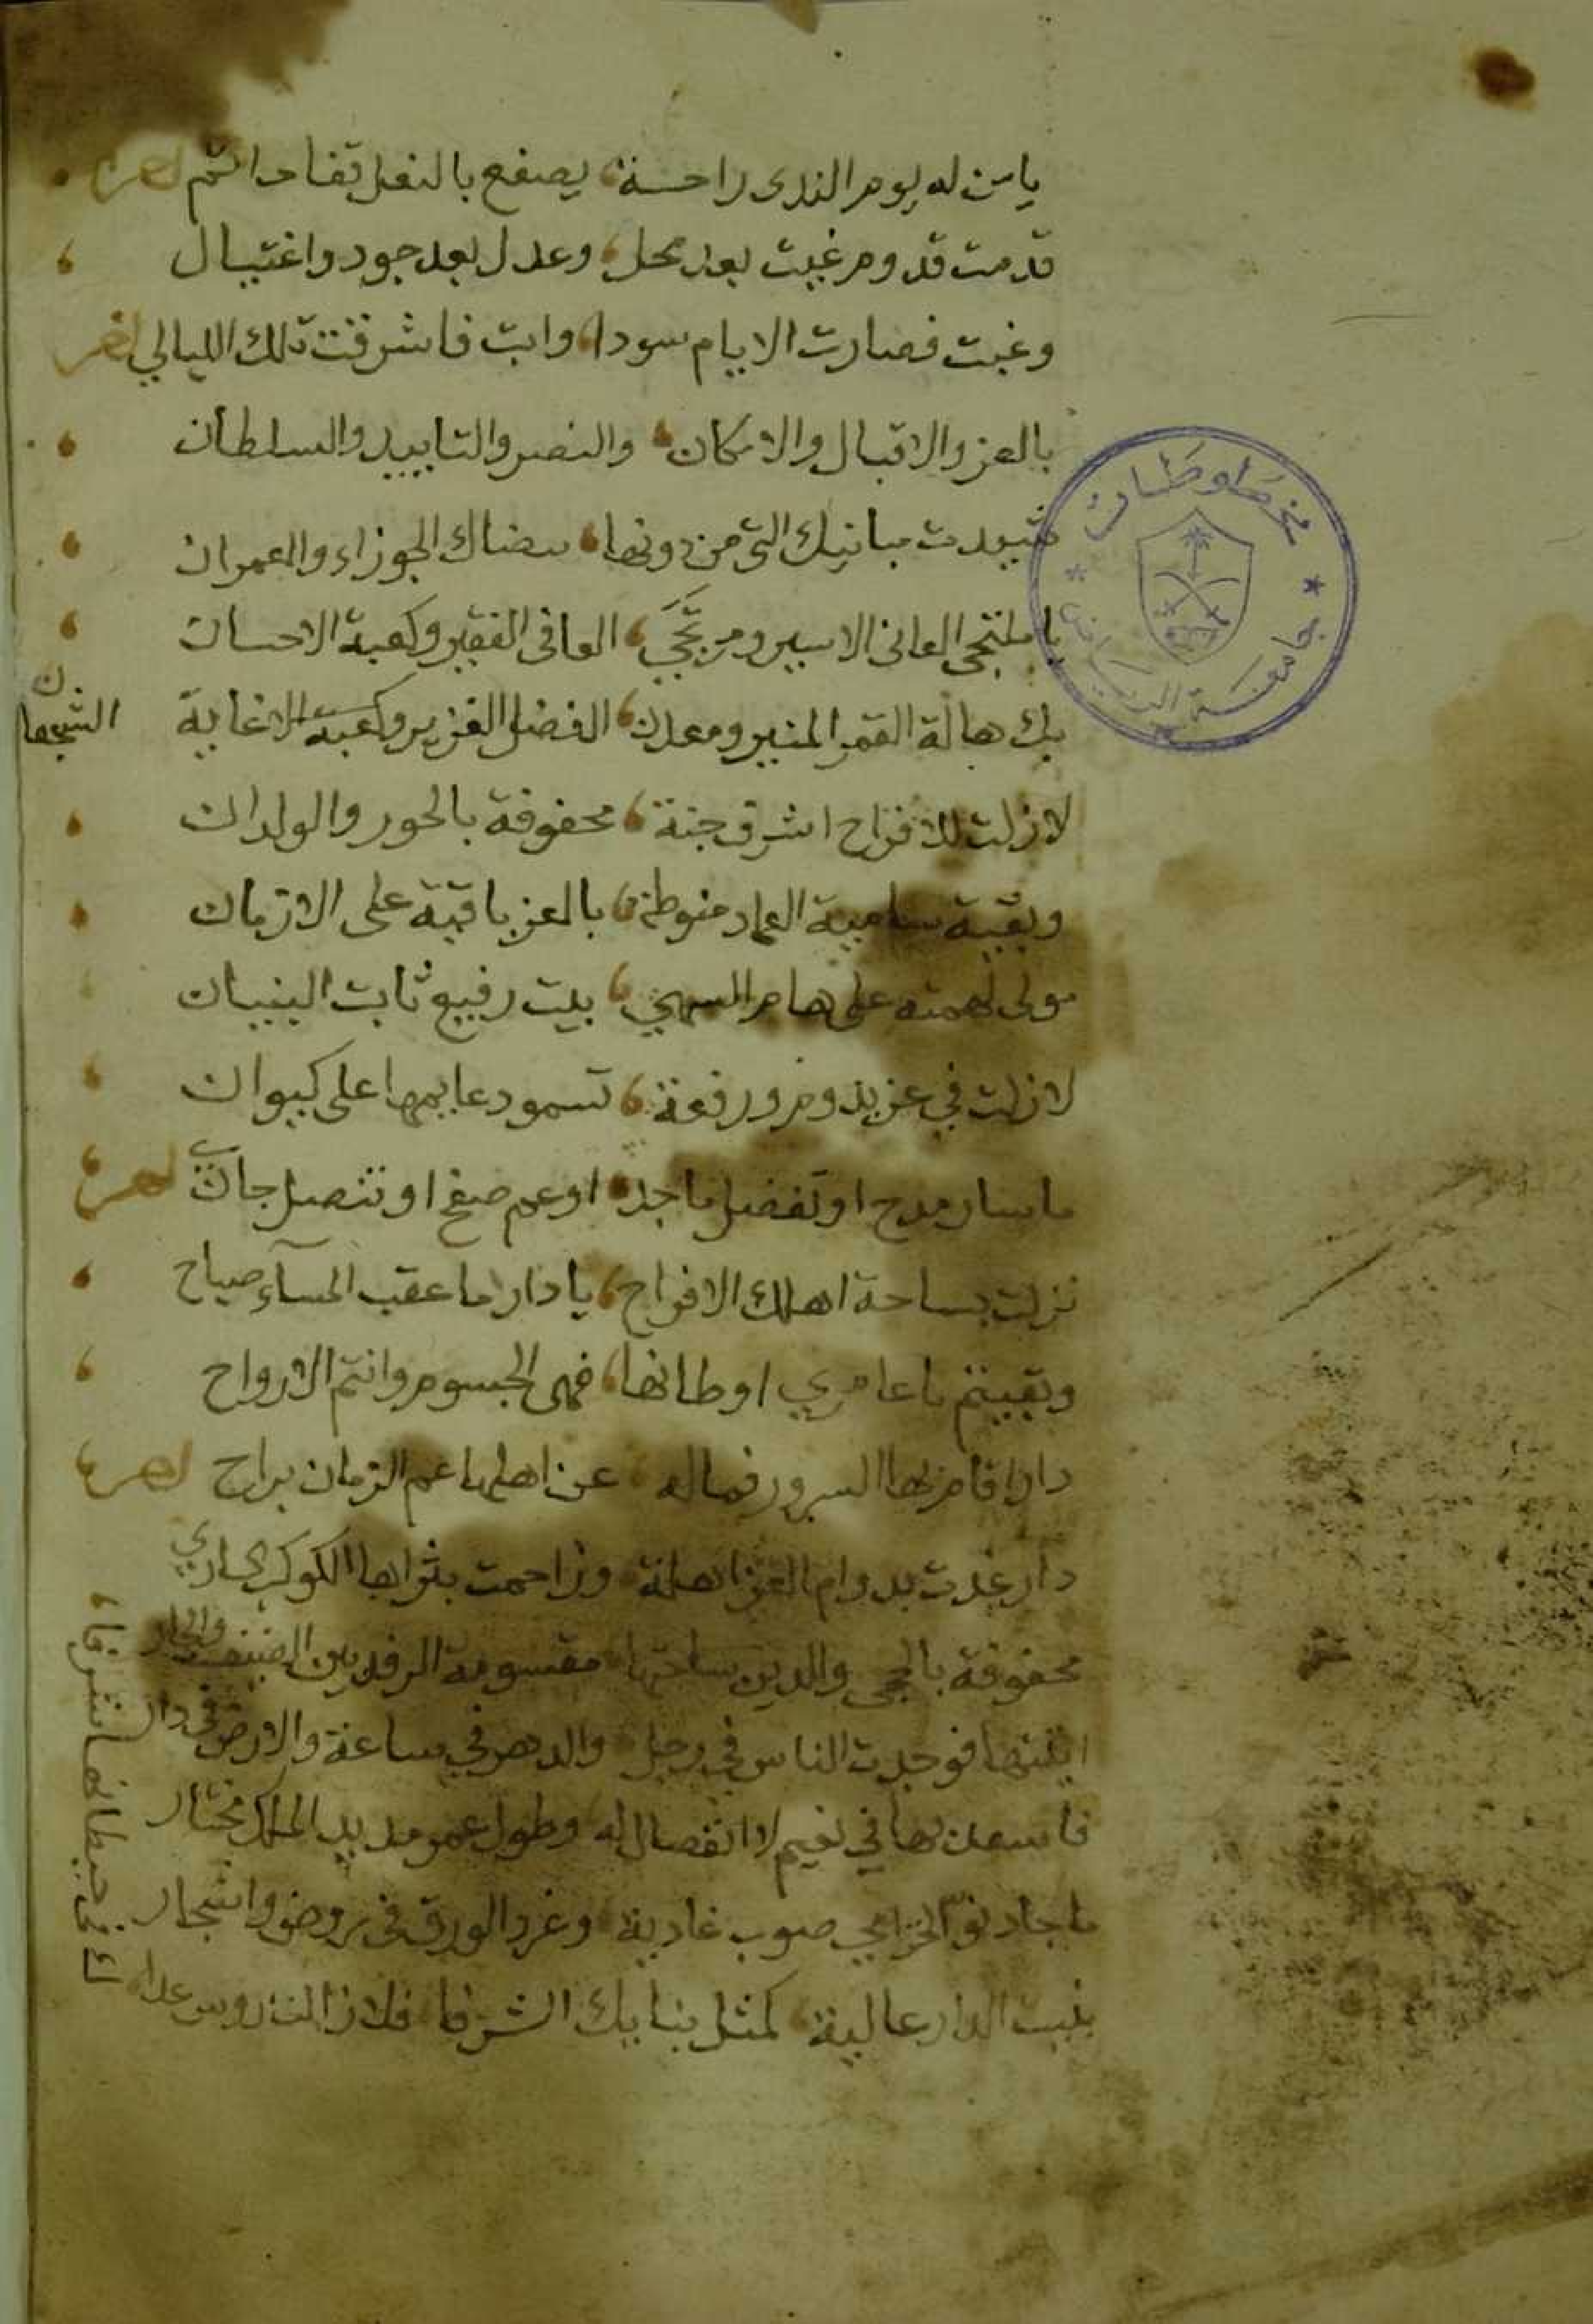 يا من له يوم الندى راحة يصفع بالنعل قفا حاتم لغيره
قدمت قدوم غيث بعد محل وعدل بعد جور واغتيال
وغبت فصارت الايام سودا وابت فاشرقت تلك الليالي لغيره
بالعز والاقبال والامكان والنصر والتاييد والسلطان
شيدت مبانيك التي من دونها الجوزاء والعمران
يا ملتجى العاني الاسير ومرتجى العافى الفقير وكعبة الاحسان
بك هالة القمر المنير ومعدن الفضل الغزير وكعبة الشجعان
لا زلت للافراح اشرق جنة محفوفة بالحور والولدان
وبقية سامية العماد منوطة بالعز باقية على الازمان
مولى لهمته على هام السهى بيت رفيع ثابت البنيان
لا زلت في عز يدوم ورفعة تسمو دعايمها على كيوان
ما سار مدح او تفضل ماجد او عم صفح او تنصل جان لغيره
نزلت بساحة اهلك الافراح يا دار ما عقب المسآء صباح
وبقيتم يا عامري اوطانها فهى الجسوم وانتم الارواح
دار اقام بها السرور فماله عن اهلها عمر الزمان براح لغيره
دار غدت بدوام العز اهلة وزاحمت بثراها الكوكب الساري
محفوفة بالحجى والدين ساحتها مقسومة الرفد بين الضيف والجار
اتيتها فوجدت الناس في رجل والدهر في ساعة والارض في دار
فاسعدن بها في نعيم لا انفصال له وطول عمر مديد
ما جاد نو الخزامي صوب غادية وغرد الورق في روض واشجار
بنيت الدار عالية كمثل بنايك الشرفا فلا زالت روس عدا
ك في حيطانها شرفا
مخطوطات
جامعة الرياض